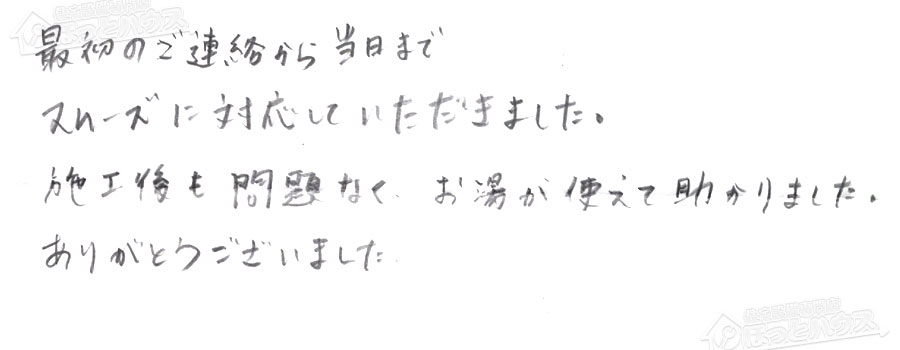 最初のご連絡から当日まで
スムーズに対応していただきました。
施工後も問題なく、お湯が使えて助かりました。
ありがとうございました
ほっとハウス